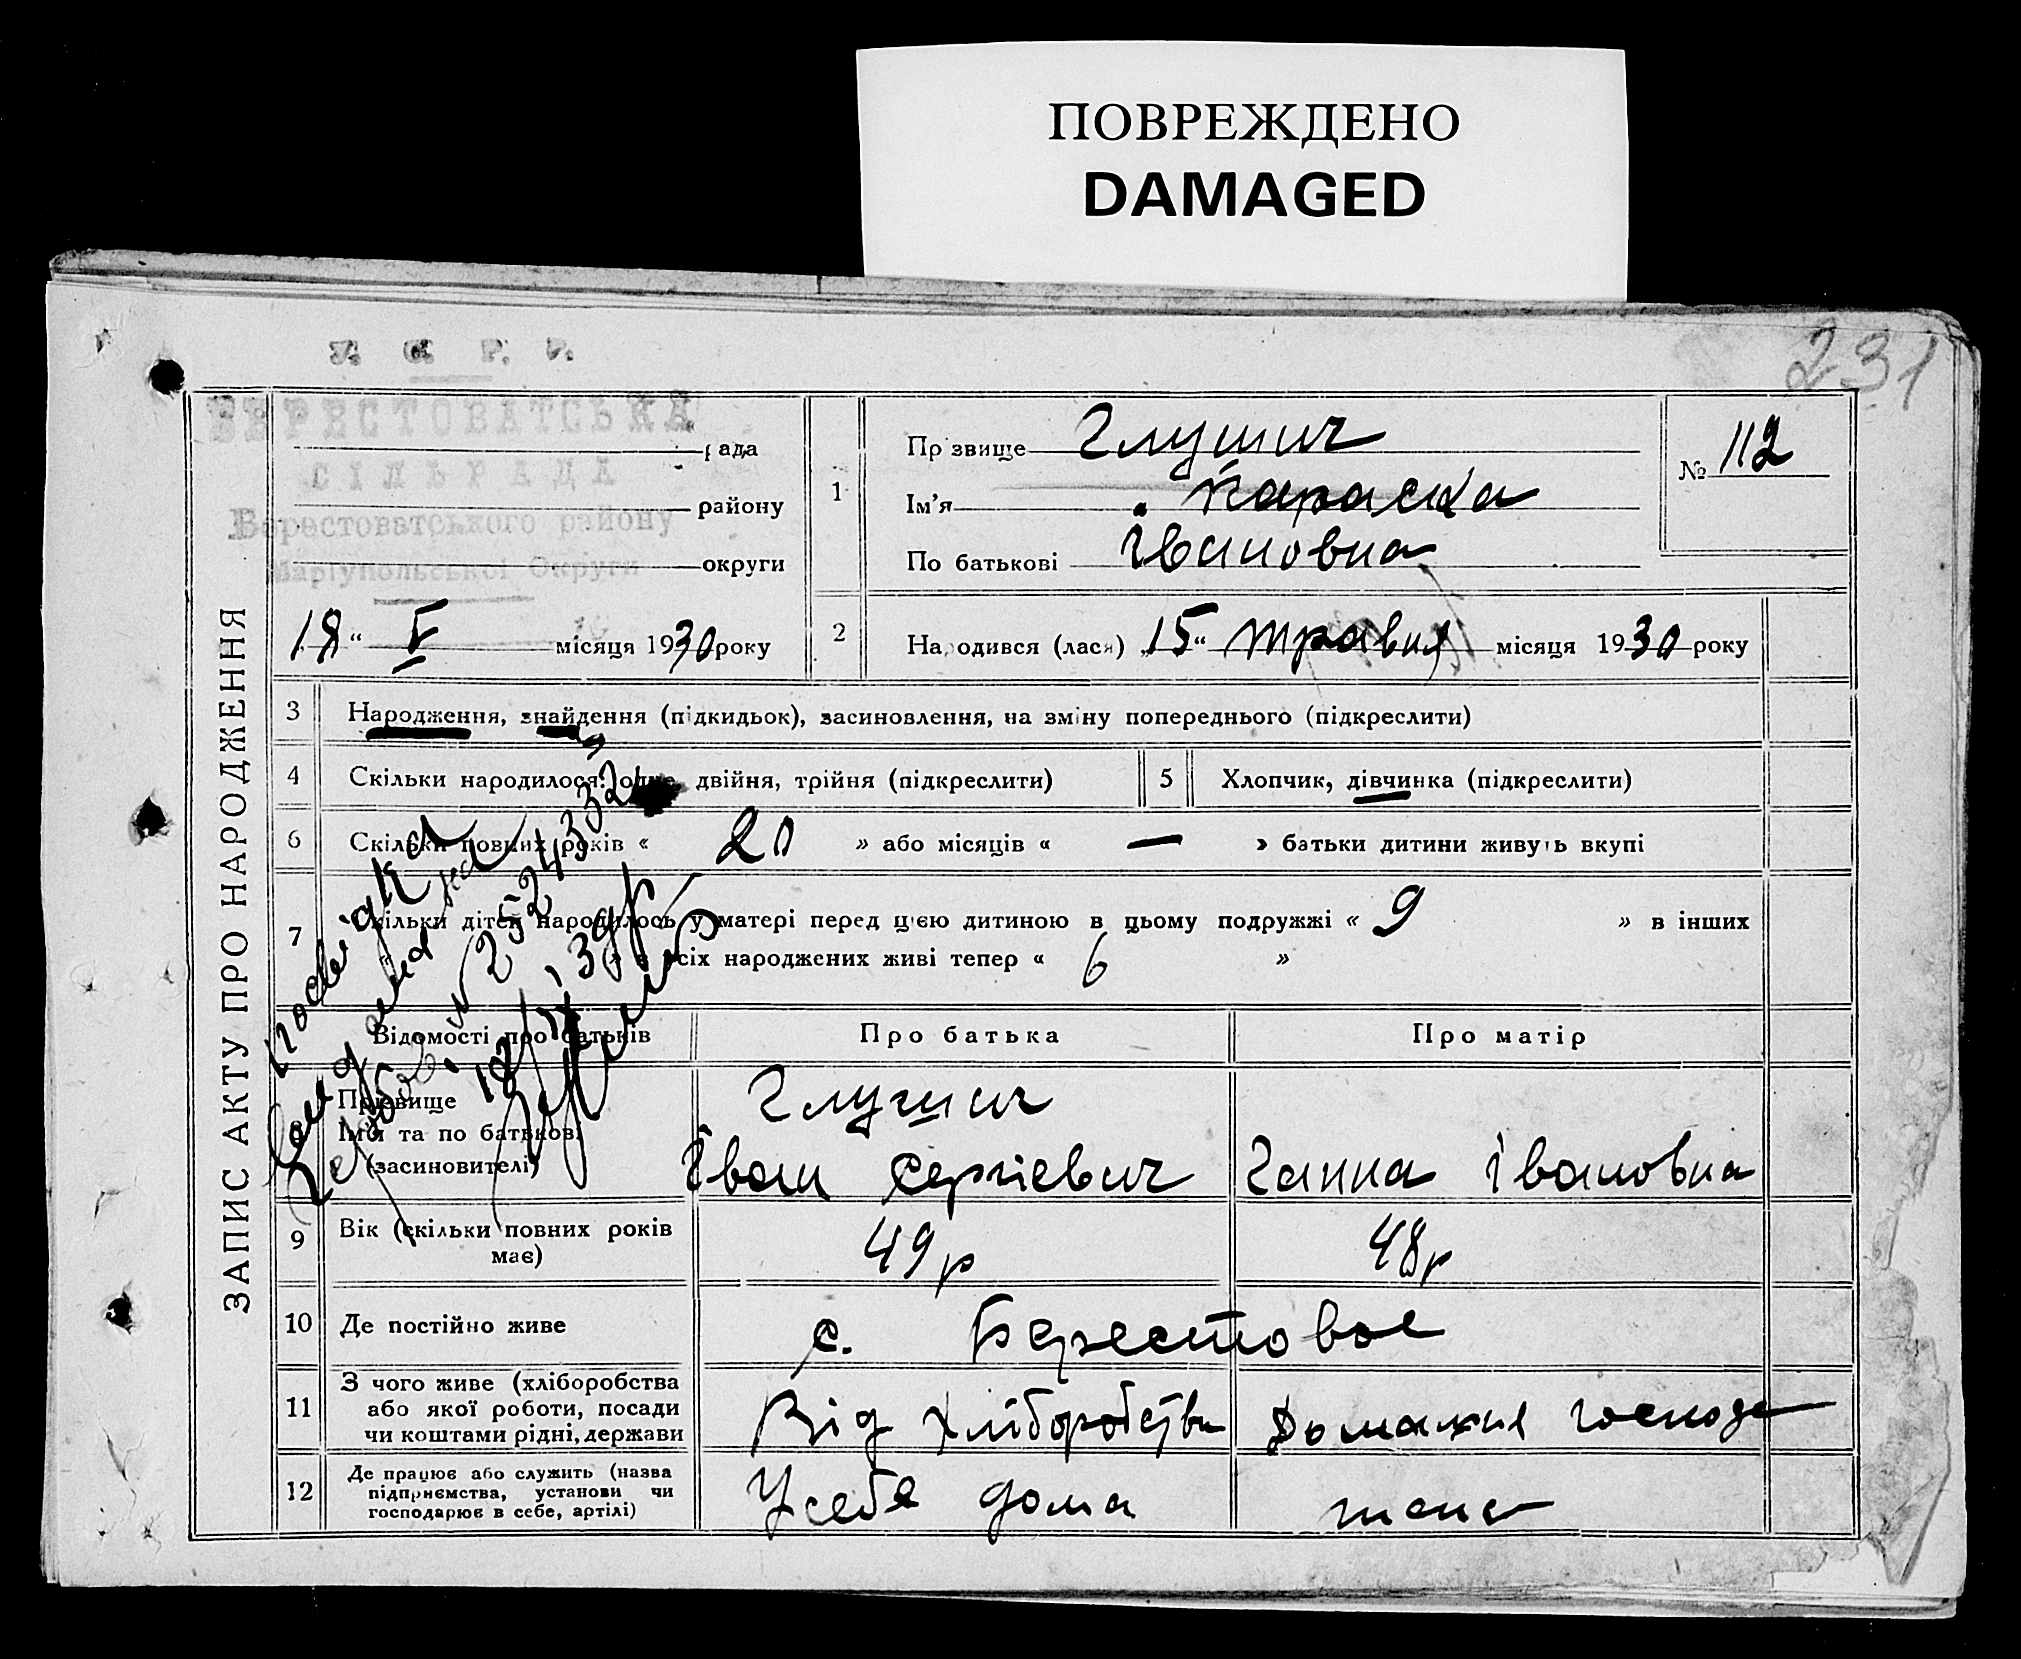 ПОВРЕЖДЕНО
DAMAGED
231
У. С. Р. Р.
БЕРЕСТОВАТСЬКА
СІЛЬРАДА
Берестоватського району
Маріупольської Округи
рада
району
округи
18 " V місяця 1930 року
ЗАПИС АКТУ ПРО НАРОДЖЕННЯ
1
Прізвище Глушич
Ім'я Параска
По батькові Івановна
№ 112
2 Народився (лася) „15" травня місяця 1930 року
3 Народження, знайдення (підкидьок), засиновлення, на зміну попереднього (підкреслити)
4 Скільки народилося: одне, двійня, трійня (підкреслити)
5 Хлопчик, дівчинка (підкреслити)
6 Скільки повних років « 20 » або місяців « — » батьки дитини живуть вкупі
7 Скільки дітей народилось у матері перед цією дитиною в цьому подружжі « 9 » в інших
« » всіх народжених живі тепер « 6 »
Відомості про батьків Про батька Про матір
8 Прізвище
Ім'я та по батькові
(засиновителі)
Глушич
Іван Сергіевич Ганна Івановна
9 Вік (скільки повних років
має)
49 р 48 р
10 Де постійно живе с. Берестовое
11 З чого живе (хліборобства
або якої роботи, посади
чи коштами рідні, держави
Від хліборобства Домахня господ
12 Де працює або служить (назва
підприємства, установи чи
господарює в себе, артілі)
У себе дома тоже